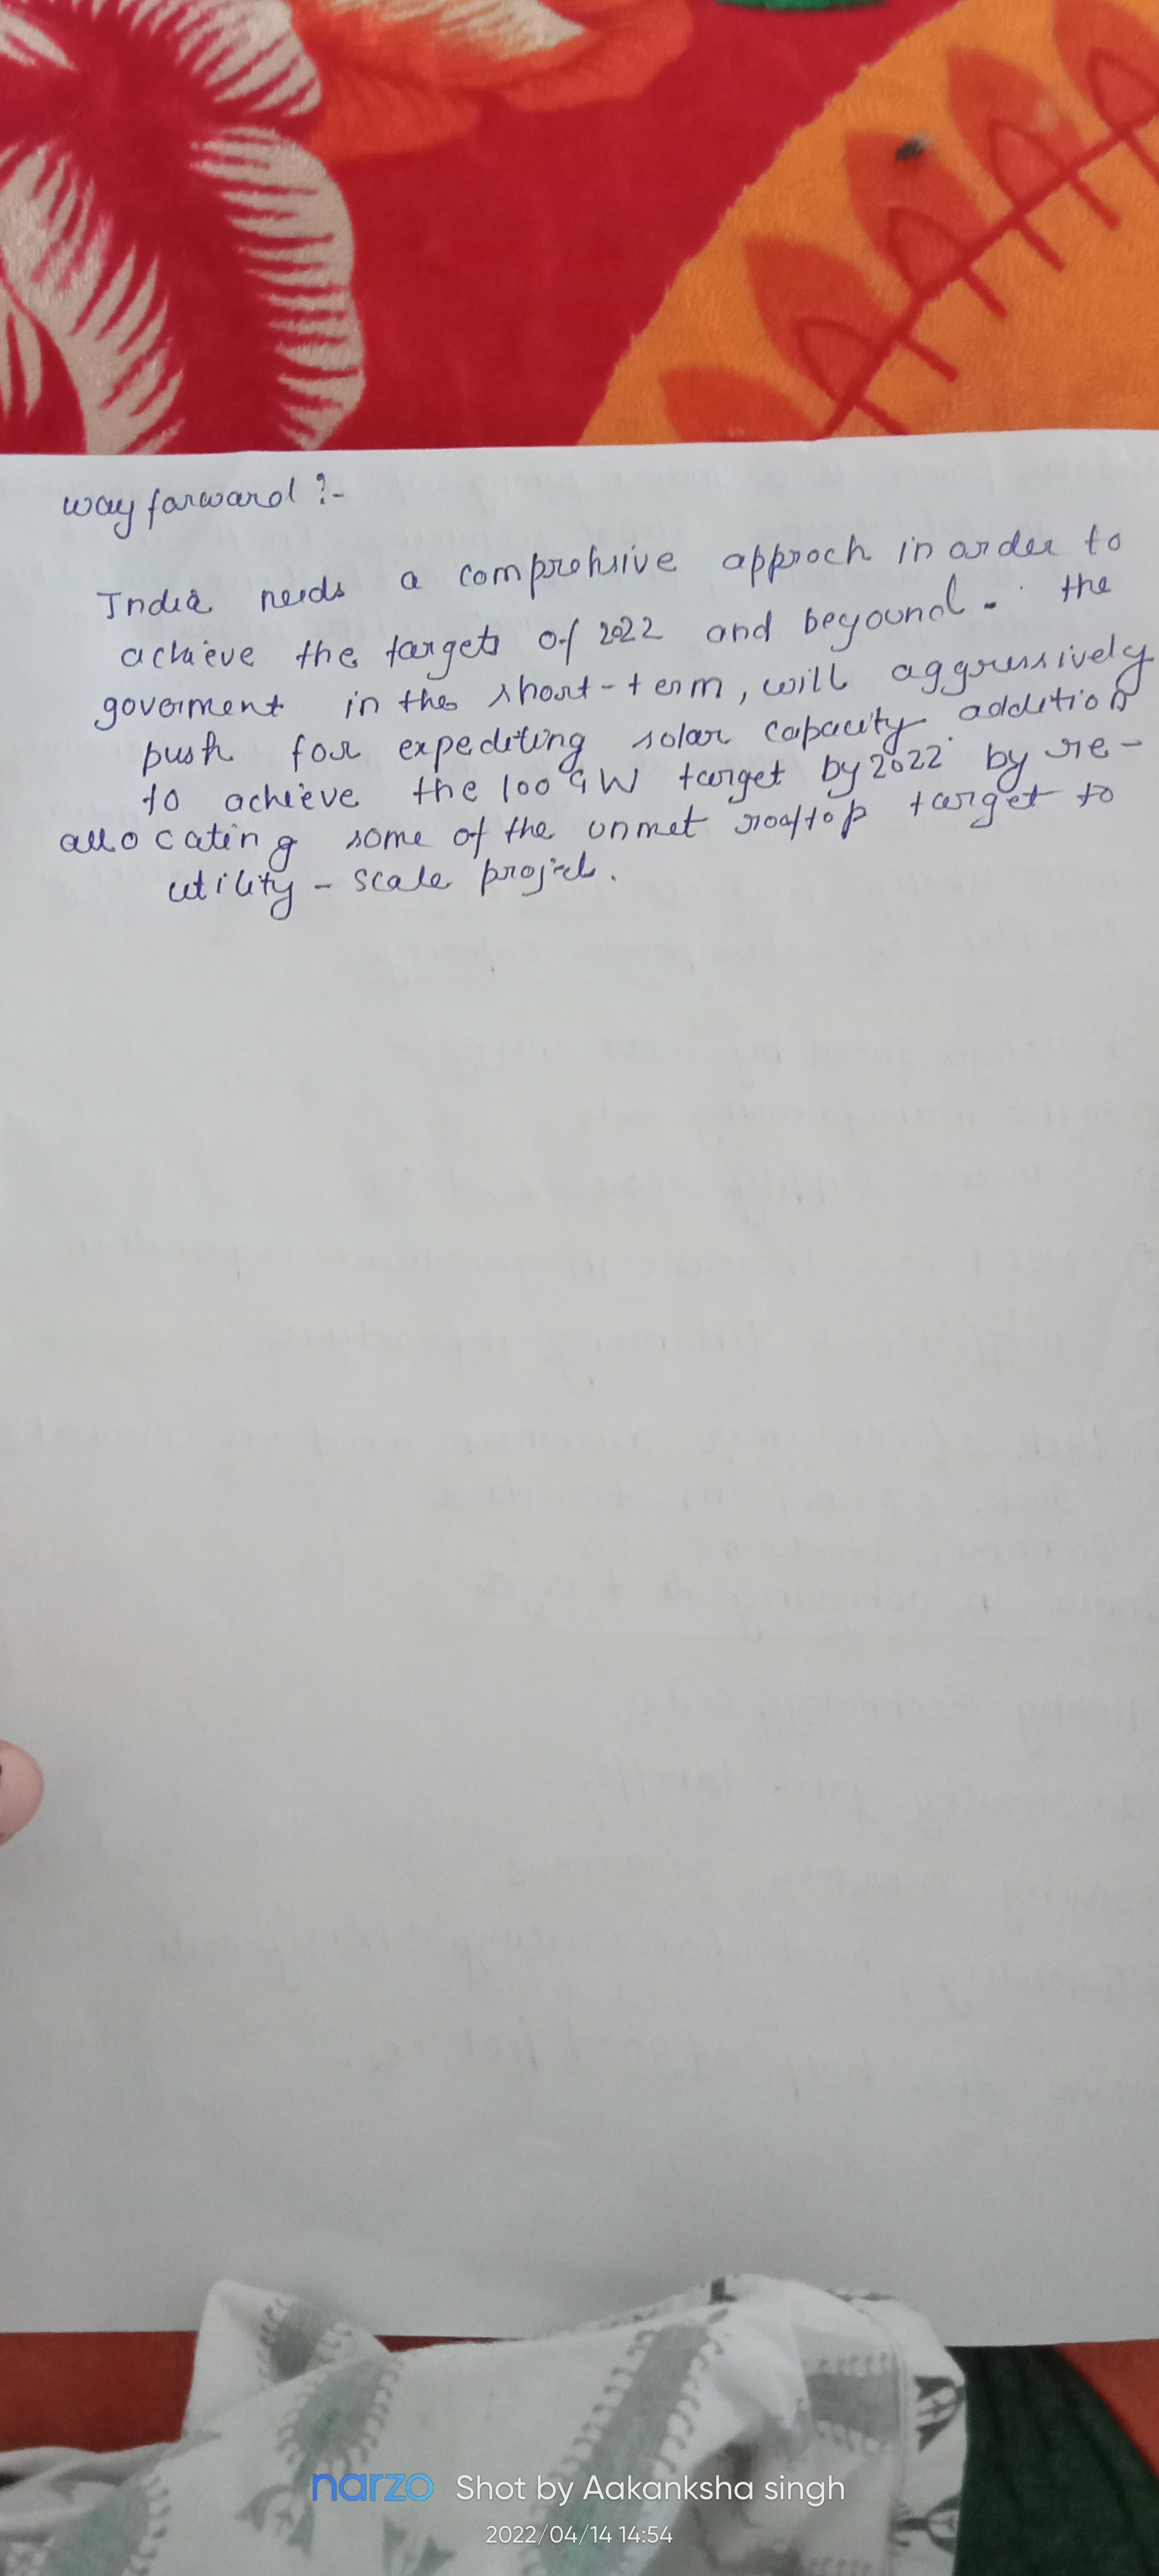 way forward :-
India needs a comprohsive approch in order to
achieve the targets of 2022 and beyound. the
goverment in the short-term, will aggressively
push for expediting solar capacity addition
to achieve the 100 GW target by 2022 by re-
allocating some of the unmet rooftop target to
utility - scale project.
narzo Shot by Aakanksha singh
2022/04/14 14:54